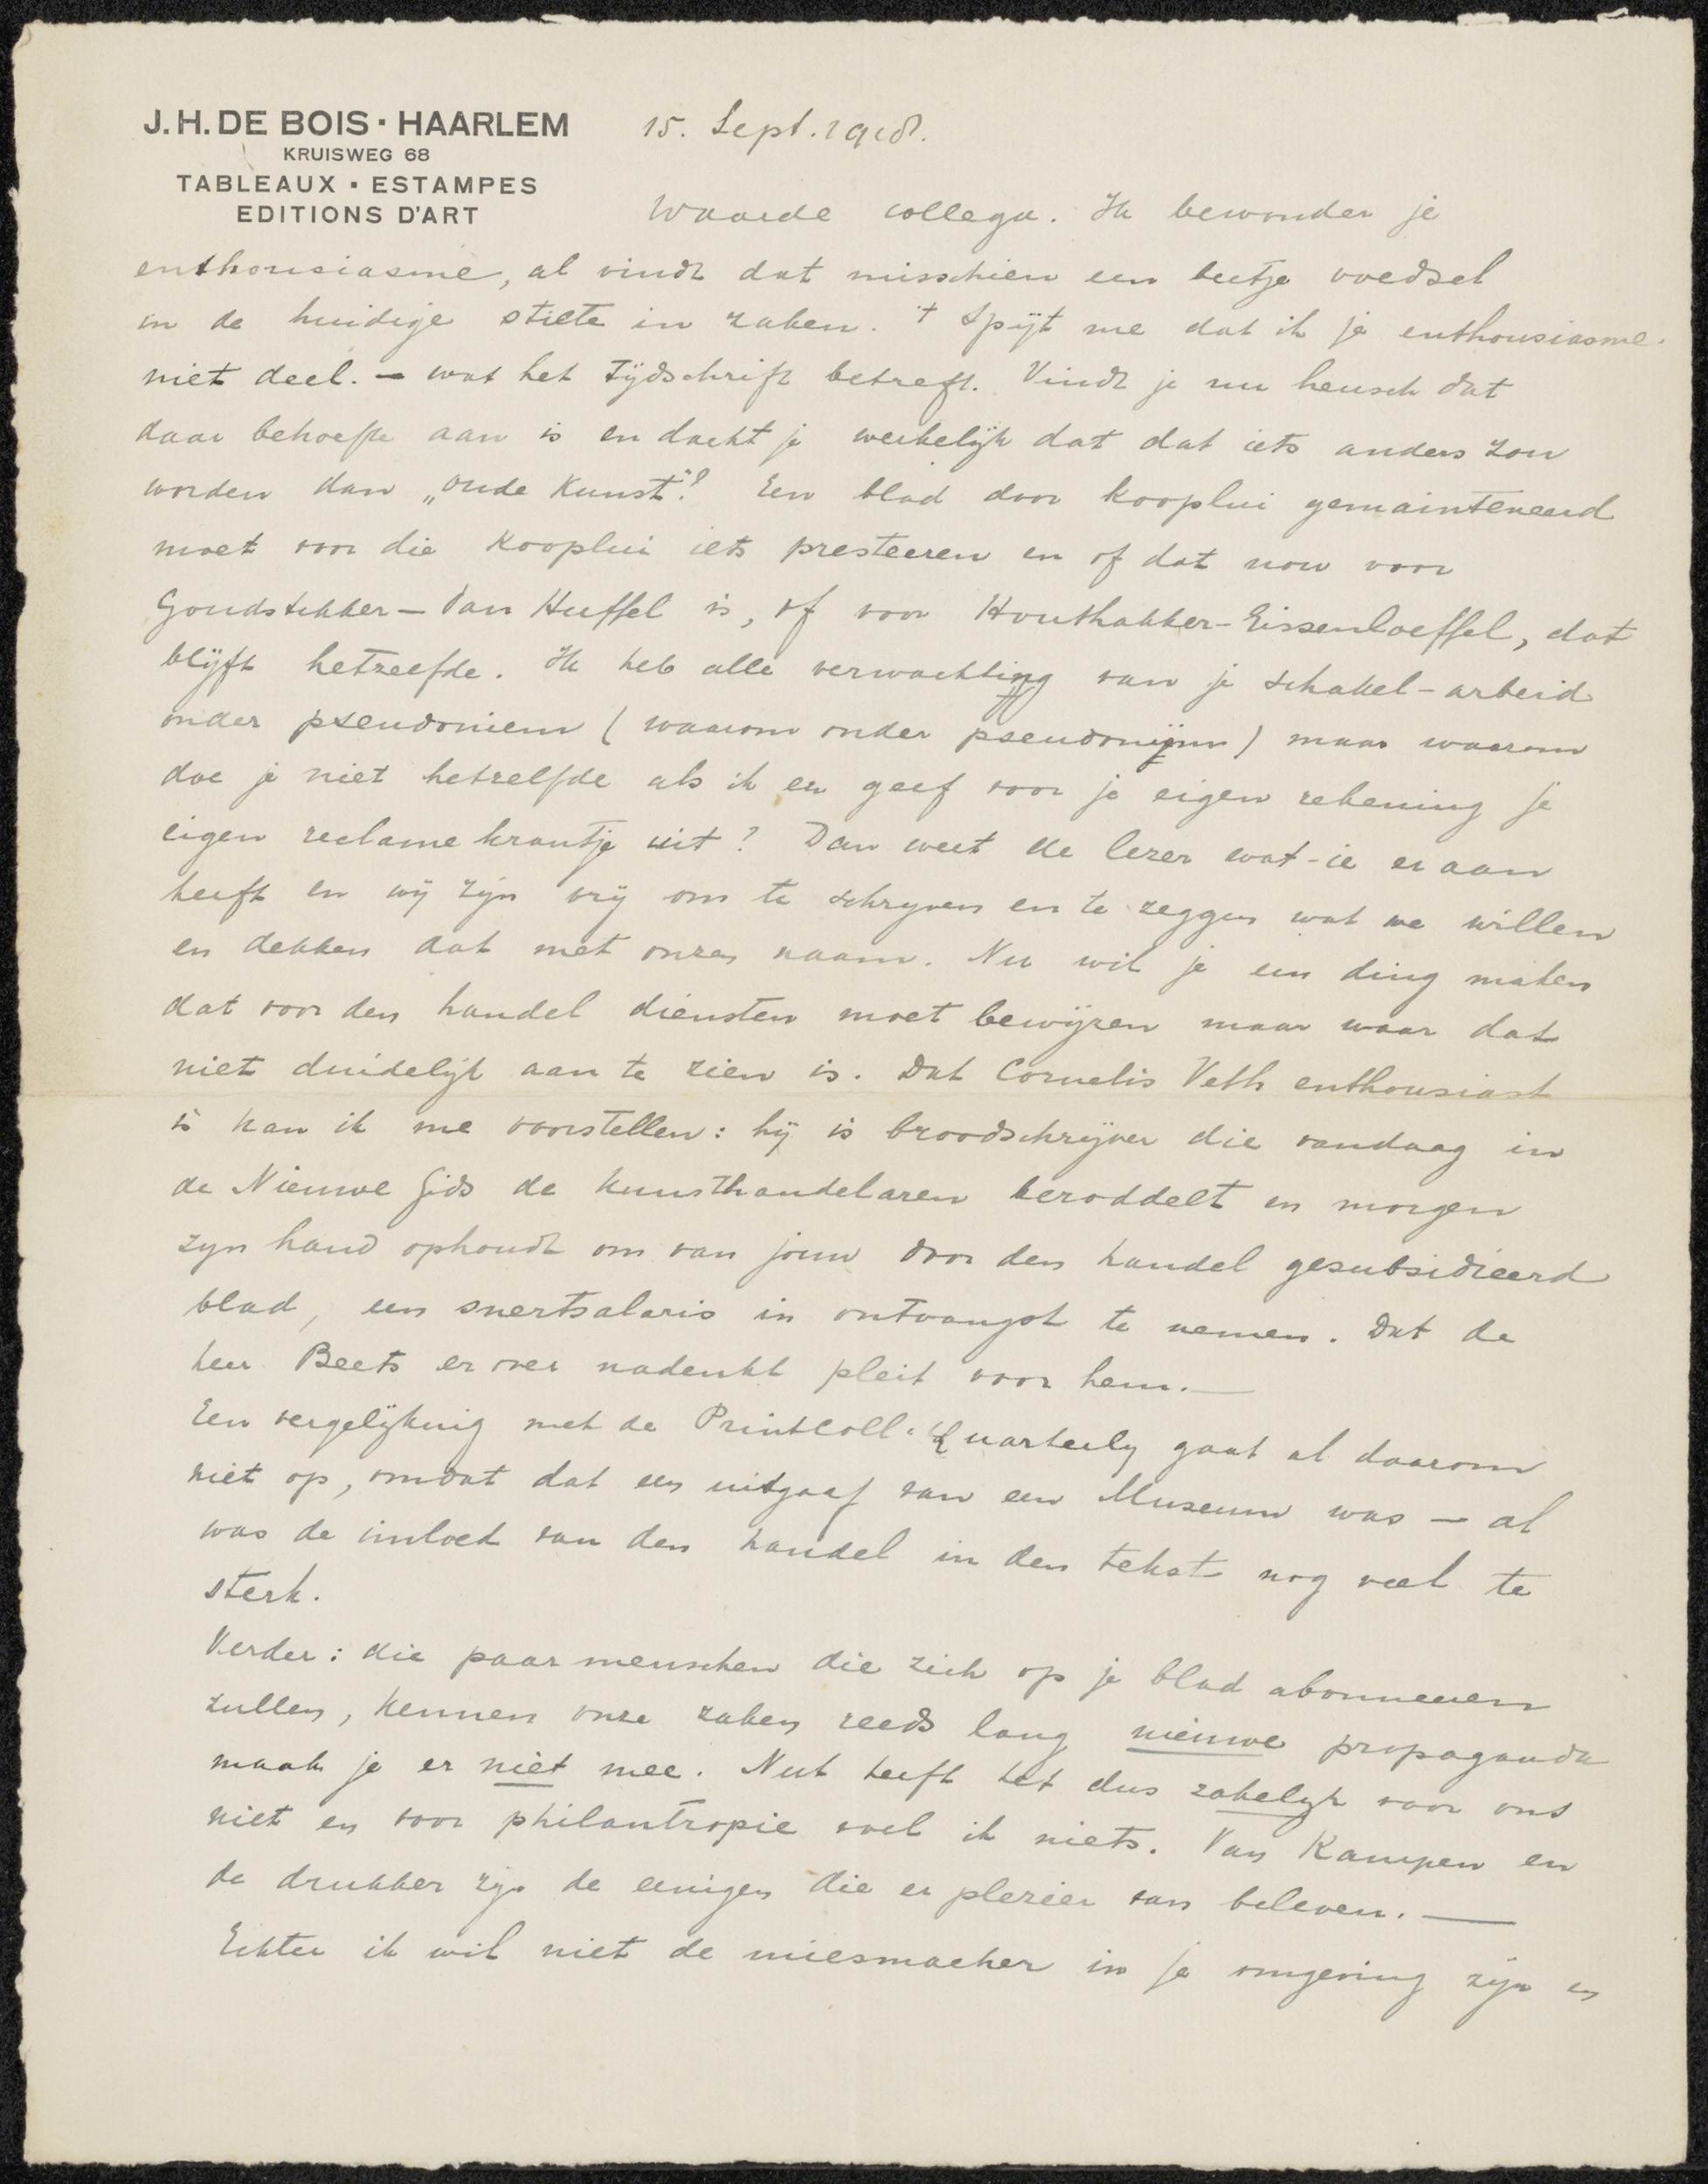 J.H. DE BOIS · HAARLEM
KRUISWEG 68
TABLEAUX · ESTAMPES
EDITIONS D'ART
15. Sept. 1918.
Waarde collega. Ik bewonder je
enthousiasme, al vindt dat misschien een beetje voedsel
in de huidige stilte in zaken. 't Spijt me dat ik je enthousiasme
niet deel. — wat het tijdschrift betreft. Vindt je nu heusch dat
daar behoefte aan is en dacht je werkelijk dat dat iets anders zou
worden dan „Oude Kunst"? Een blad door kooplui gemainteneerd
moet voor die kooplui iets presteeren en of dat nou voor
Goudstikker — Van Huffel is, of voor Houthakker-Eissenloeffel, dat
blijft hetzelfde. Ik heb alle verwachting van je schakel-arbeid
onder pseudoniem (waarom onder pseudonijm) maar waarom
doe je niet hetzelfde als ik en geef voor je eigen rekening je
eigen reclame krantje uit? Dan weet de lezer wat-ie er aan
heeft en wij zijn vrij om te schryven en te zeggen wat we willen
en dekken dat met onzen naam. Nu wil je een ding maken
dat voor den handel diensten moet bewijzen maar waar dat
niet duidelijk aan te zien is. Dat Cornelis Veth enthousiast
is kan ik me voorstellen: hij is broodschrijver die vandaag in
de Nieuwe Gids de kunsthandelaren beroddelt en morgen
zyn hand ophoudt om van jouw door den handel gesubsidieerd
blad, een snertsalaris in ontvangst te nemen. Dat de
heer Beets er over nadenkt pleit voor hem. —
Een vergelijking met de Print Coll. Quarterly gaat al daarom
niet op, omdat dat een uitgaaf van een Museum was — al
was de invloed van den handel in den tekst nog veel te
sterk.
Verder: die paar menschen die zich op je blad abonneeren
zullen, kennen onze zaken reeds lang nieuwe propaganda
maak je er niet mee. Nut heeft het dus zakelyk voor ons
niet en voor philantropie voel ik niets. Van Kampen en
de drukker zijn de eenigen die er plezier van beleven. —
Echter ik wil niet de miesmacher in je omgeving zijn en